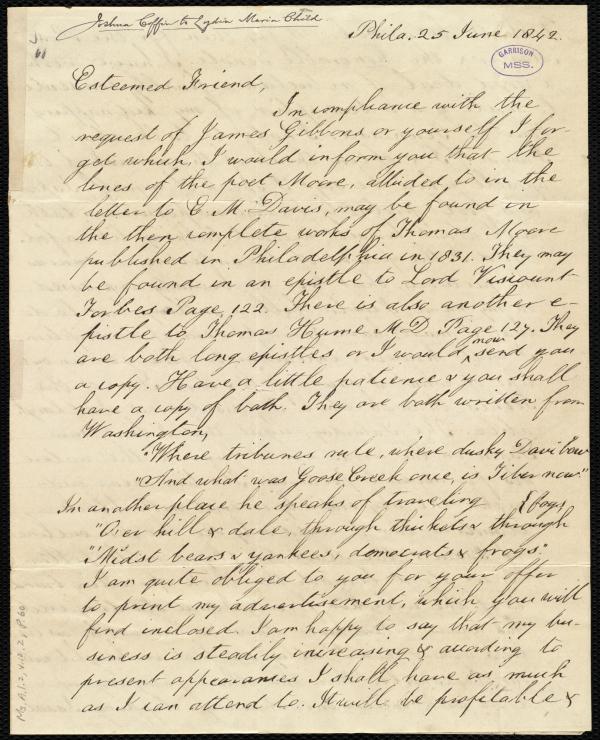 Joshua Coffin to Lydia Maria Child
Phila. 25 June 1842.
GARRISON
MSS.
Esteemed Friend,
In compliance with the
request of James Gibbons or yourself I for-
get which, I would inform you that the
lines of the poet Moore, alluded to in the
letter to E. M. Davis, may be found in
the then complete works of Thomas Moore
published in Philadelphia in 1831. They may
be found in an epistle to Lord Viscount
Forbes Page, 122. There is also another e-
pistle to Thomas Hume M.D. Page 127. They
are both long epistles or I would now send you
a copy. Have a little patience & you shall
have a copy of both. They are both written from
Washington,
"Where tribunes rule, where dusky Davi bow
"And what was Goose Creek once, is Tiber now."
In another place he speaks of traveling
"O'er hill & dale, through thickets & through bogs,
"Midst bears & yankees, democrats & frogs."
I am quite obliged to you for your offer
to print my advertisement, which you will
find inclosed. I am happy to say that my bu-
siness is steadily increasing & according to
present appearances I shall have as much
as I can attend to. It will be profitable &
Ms. A.1.2, v.12.2, p.60